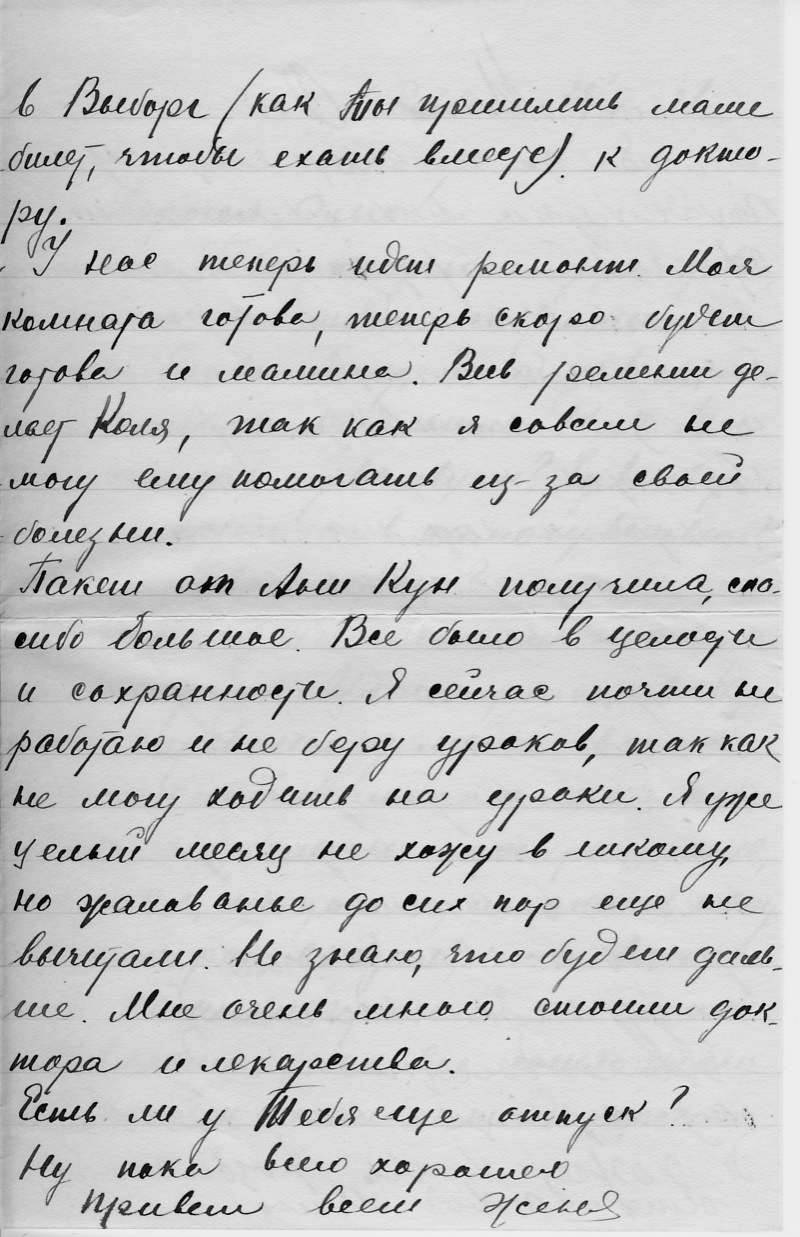 в Выборг (как Ты пришлешь маме
билет, чтобы ехать вместе) к докто-
ру.
У нас теперь идет ремонт. Моя
комната готова, теперь скоро будет
готова и мамина. Вев ремонт де-
лает Коля, так как я совсем не
могу ему помогать из-за своей
болезни.
Пакет от Кун получила, спа-
сибо большое. Все было в целости
и сохранности. Я сейчас почти не
работаю и не беру уроков, так как
не могу ходить на уроки. Я уже
целый месяц не хожу в школу,
но жалованье до сих пор еще не
вычитали. Не знаю, что будет даль-
ше. Мне очень много стоили док-
тора и лекарства.
Есть ли у Тебя еще отпуск?
Ну пока всего хорошего
Привет всем Женя